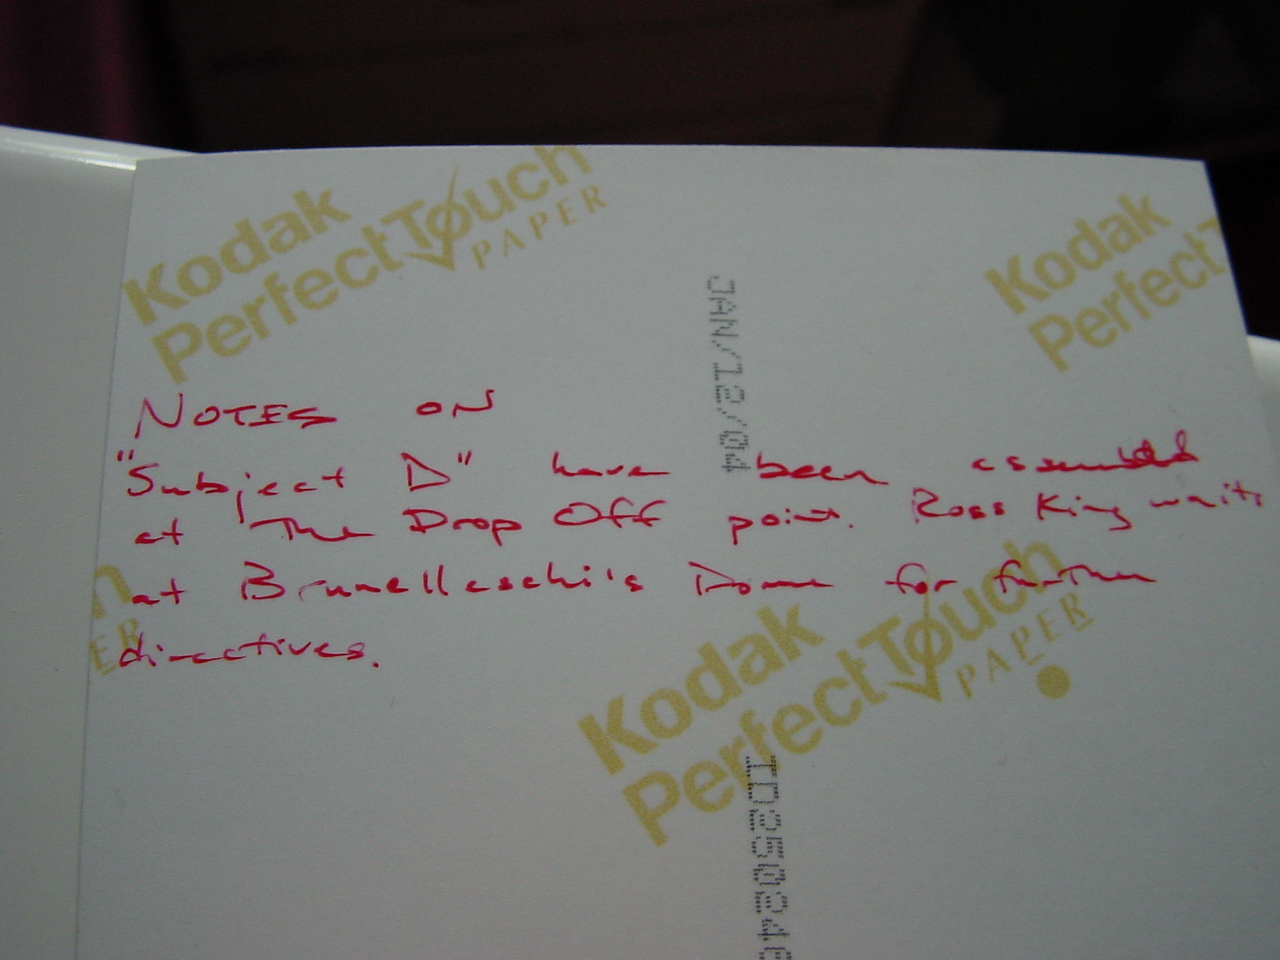 Kodak
Perfect Touch
PAPER
Kodak
Perfect T
JAN/12/04
NOTES ON
"Subject D" have been assembled
at The Drop Off point. Ross King waits
at Brunelleschi's Dome for further
directives.
Kodak
Perfect Touch
PAPER